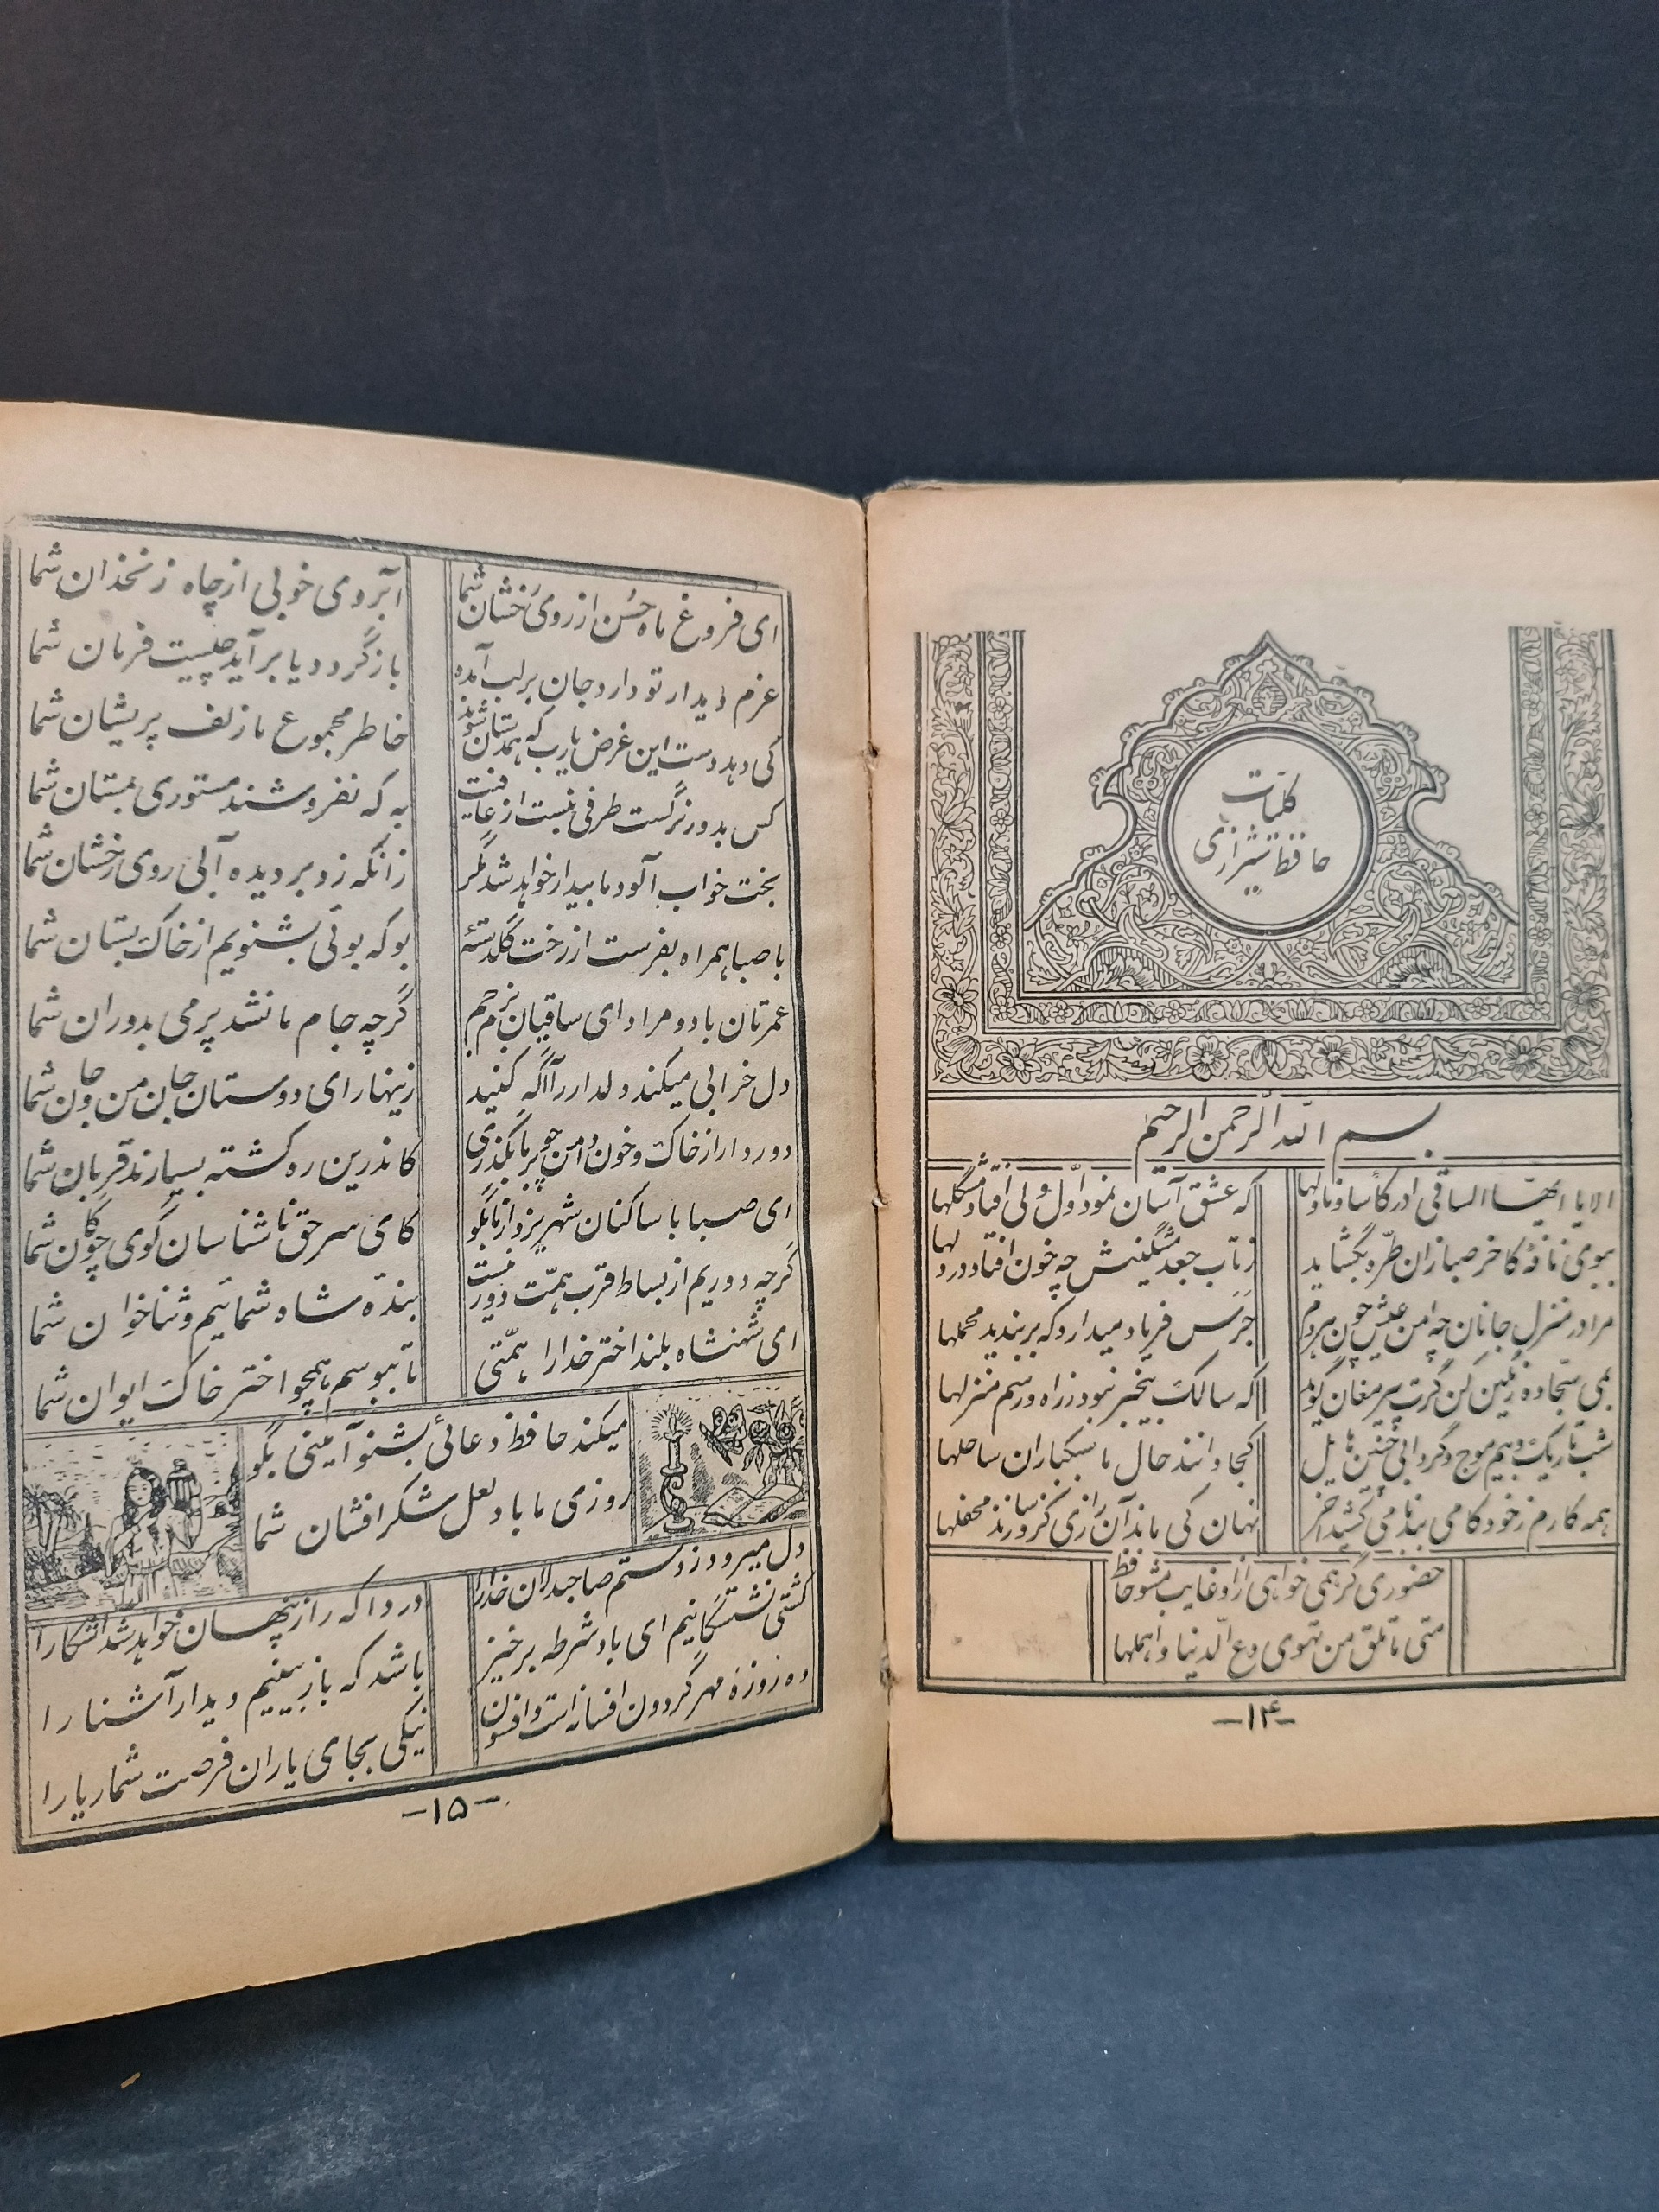 کلیات
حافظ شیرازی
بسم الله الرحمن الرحیم
الا یا ایها الساقی ادر کأسا و ناولها که عشق آسان نمود اول ولی افتاد مشکلها
ببوی نافه کاخر صبا زان طره بگشاید ز تاب جعد مشگینش چه خون افتاد در دلها
مرا در منزل جانان چه امن عیش چون هردم جرس فریاد میدارد که بربندید محملها
بمی سجاده رنگین کن گرت پیر مغان گوید که سالک بیخبر نبود ز راه و رسم منزلها
شب تاریک و بیم موج و گردابی چنین هایل کجا دانند حال ما سبکباران ساحلها
همه کارم ز خود کامی ببدنامی کشید آخر نهان کی ماند آن رازی کزو سازند محفلها
حضوری گر همی خواهی ازو غایب مشو حافظ
متی ما تلق من تهوی دع الدنیا و اهملها
-۱۴-
ای فروغ ماه حسن از روی رخشان شما آبروی خوبی از چاه زنخدان شما
عزم دیدار تو دارد جان بر لب آمده باز گردد یا برآید چیست فرمان شما
کی دهد دست این غرض یارب که همدستان شوند خاطر مجموع ما زلف پریشان شما
کس بدور نرگست طرفی نبست از عافیت به که نفروشند مستوری بمستان شما
بخت خواب آلود ما بیدار خواهد شد مگر زانکه زد بر دیده آبی روی رخشان شما
با صبا همراه بفرست از رخت گلدسته بو که بوئی بشنویم از خاک بستان شما
عمرتان باد و مراد ای ساقیان بزم جم گرچه جام ما نشد پر می بدوران شما
دل خرابی میکند دلدار را آگه کنید زینهار ای دوستان جان من و جان شما
دور دار از خاک و خون دامن چو بر ما بگذری کاندرین ره کشته بسیارند قربان شما
ای صبا با ساکنان شهر یزد از ما بگو کای سر حق ناشناسان گوی چوگان شما
گرچه دوریم از بساط قرب همت دور نیست بنده شاه شمائیم و ثناخوان شما
ای شهنشاه بلند اختر خدا را همتی تا ببوسم همچو اختر خاک ایوان شما
میکند حافظ دعائی بشنو آمینی بگو
روزی ما باد لعل شکر افشان شما
دل میرود ز دستم صاحبدلان خدا را دردا که راز پنهان خواهد شد آشکارا
کشتی نشستگانیم ای باد شرطه برخیز باشد که باز بینیم دیدار آشنا را
ده روزه مهر گردون افسانه است و افسون نیکی بجای یاران فرصت شمار یارا
-۱۵-